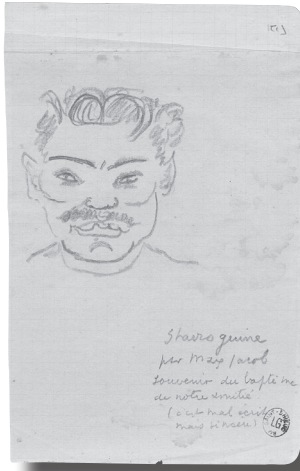 Stavroguine
par Max Jacob
souvenir du baptême
de notre amitié
(c'est mal écrit
mais sincère)